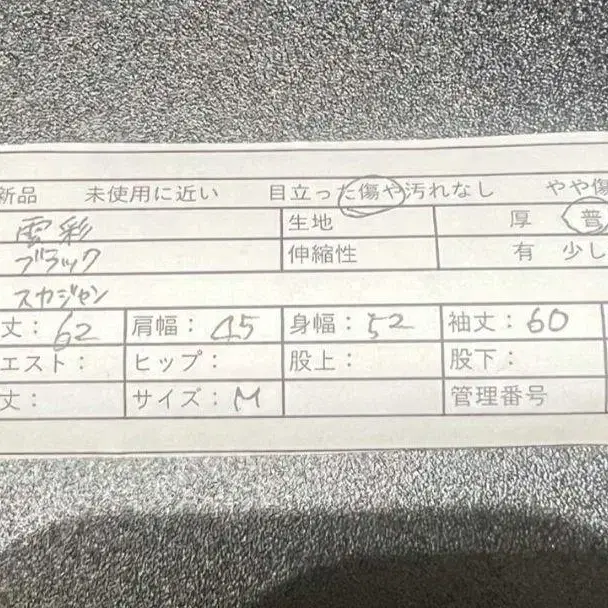 新品 未使用に近い 目立った傷や汚れなし やや傷
雲彩 生地 厚 普
ブラック 伸縮性 有 少し
スカジャン
丈：62 肩幅：45 身幅：52 袖丈：60
エスト： ヒップ： 股上： 股下：
丈： サイズ：M 管理番号